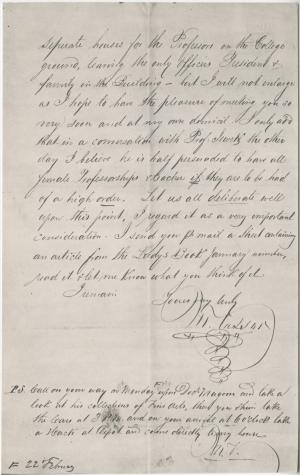 seperate houses for the Professors on the College
ground, leaving the only Officers President &
family in the Building – but I will not enlarge
as I hope to have the pleasure of meeting you so
very soon and at my own domicil. I only add
that in a conversation with Prof. Jewett the other
day I believe he is half persuaded to have all
female Professorships & Teachers if they are to be had
of a high order. Let us all deliberate well
upon this point, I regard it as a very important
consideration. I send you by mail a sheet containing
an article from the Lady's Book January number,
read it & let me know what you think of it.
I remain
Yours very truly
P.S. Call on your way on Monday upon Doct Magoon and take a
look at his collections of Fine Arts, then you other take
the Cars at P.M. and on your arrival at 6 o'clock take
a Hack at Depot and come directly to my house
22 February